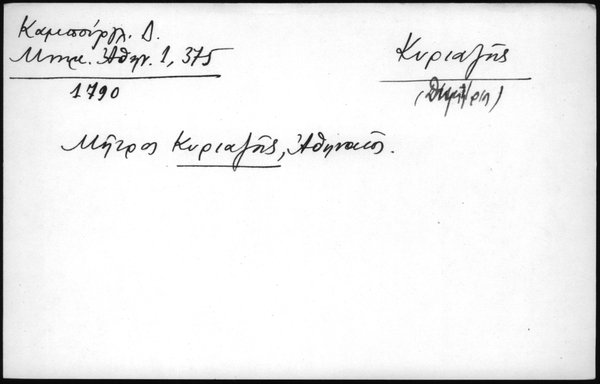 Καμπούργλ. Δ.
Μνημ. Ἀθην. 1, 375
1790
Κυριαζῆς
Μῆτρος Κυριαζῆς, Ἀθηναῖος.